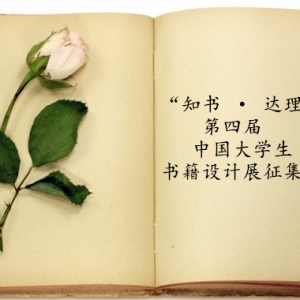 “知书 · 达理
第四届
中国大学生
书籍设计展征集